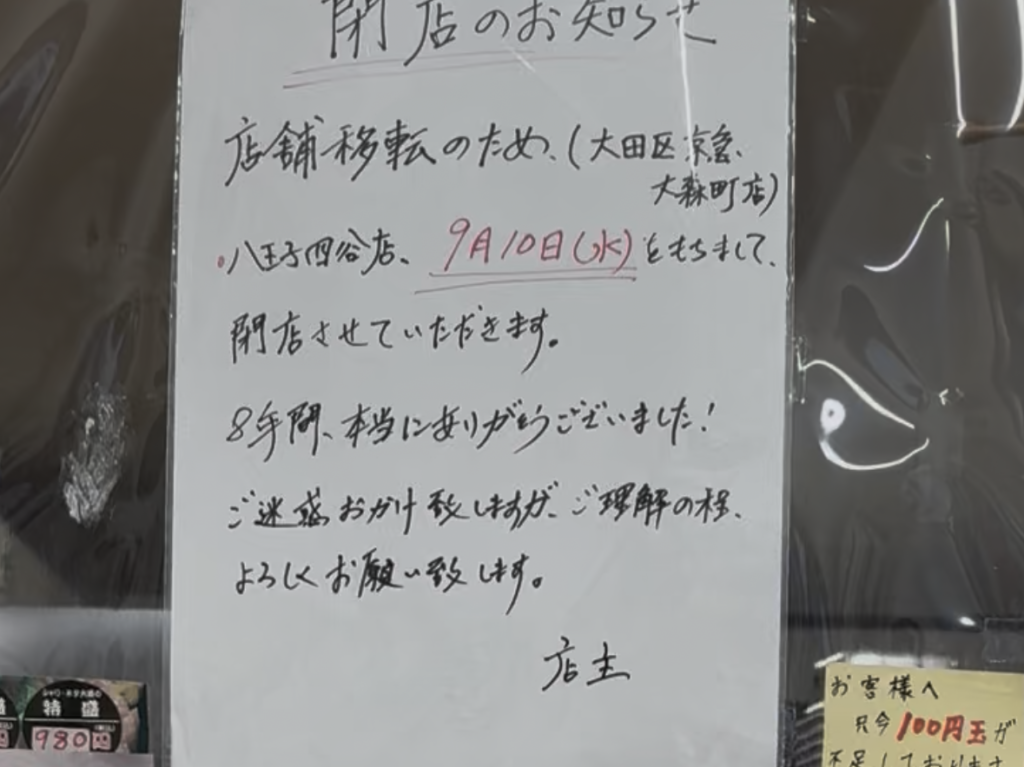 閉店のお知らせ
店舗移転のため、(大田区京急
大森町店)
・八王子四谷店、9月10日(水)をもちまして、
閉店させていただきます。
8年間、本当にありがとうございました!
ご迷惑おかけ致しますが、ご理解の程、
よろしくお願い致します。
店主
特盛
980円
お客様へ
只今100円玉が
不足しております